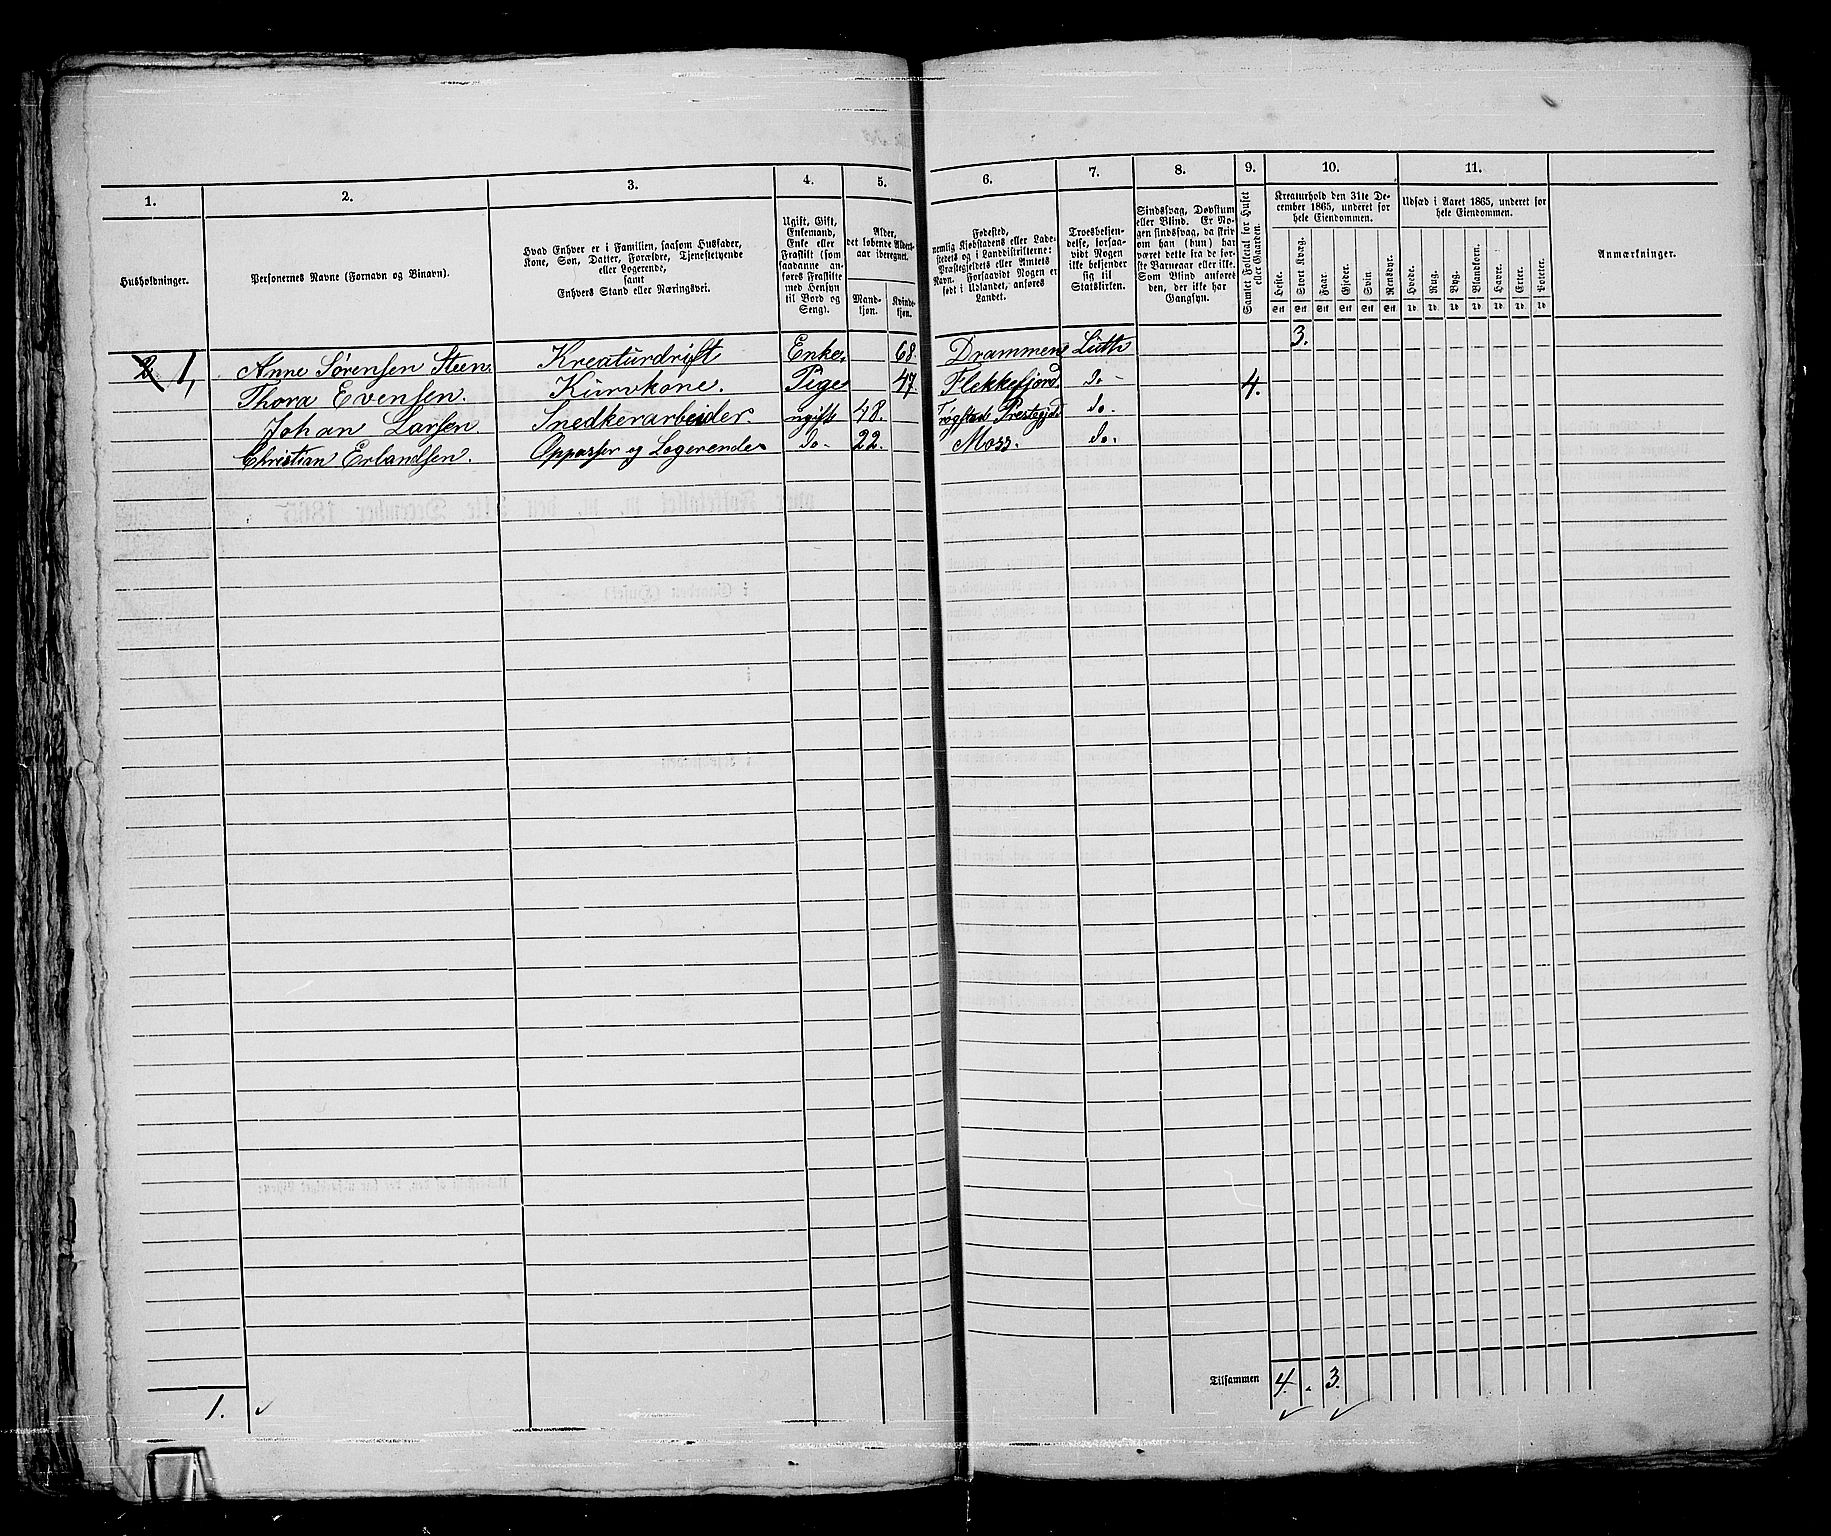 1. 2. 3. 4. 5. 6. 7. 8. 9. 10. 11.
Husholdninger.
Personernes Navne (Fornavn og Binavn).
Hvad Enhver er i Familien, saasom Husfader,
Kone, Søn, Datter, Forældre, Tjenestetyende
eller Logerende,
samt
Enhvers Stand eller Næringsvei.
Ugift, Gift,
Enkemand,
Enke eller
Fraskilt (som
saadanne an-
føres Fraskilte
med Hensyn
til Bord og
Seng).
Alder,
det løbende Alders-
aar iberegnet.
Mand-
kjøn.
Kvinde-
kjøn.
Fødested,
nemlig Kjøbstadens eller Lade-
stedets og i Landdistrikterne:
Præstegjeldets eller Amtets
Navn. Forsaavidt Nogen er
født i Udlandet, anføres
Landet.
Troesbekjen-
delse, forsaa-
vidt Nogen
ikke bekjender
sig til
Statskirken.
Sindssvag, Døvstum
eller Blind. Er No-
gen sindssvag, da skriv
om han (hun) har
været dette fra de før-
ste Barneaar eller ikke.
Som Blind anføres
den, der ikke har
Gangsyn.
Samlet Folketal for Huset
eller Gaarden.
Kreaturhold den 31te De-
cember 1865, underet for
hele Eiendommen.
Heste.
Stort Kvæg.
Faar.
Gjeder.
Svin.
Rensdyr.
Udsæd i Aaret 1865, underet for
hele Eiendommen.
Hvede.
Rug.
Byg.
Blandkorn.
Havre.
Erter.
Poteter.
Anmærkninger.
2 1, Anne Sørensen Steen. Kreaturdrift Enke. 68. Drammen Luth 3.
Thora Evensen. Kurvkone. Pige 47. Flekkefjord. do - 4.
Johan Larsen. Snedkerarbeider. ugift 48. Trøgstad Prestegjd do.
Christian Erlandsen. Oppasser og Logerende do - 22. Moss. do.
Tilsammen 4. 3.
1.